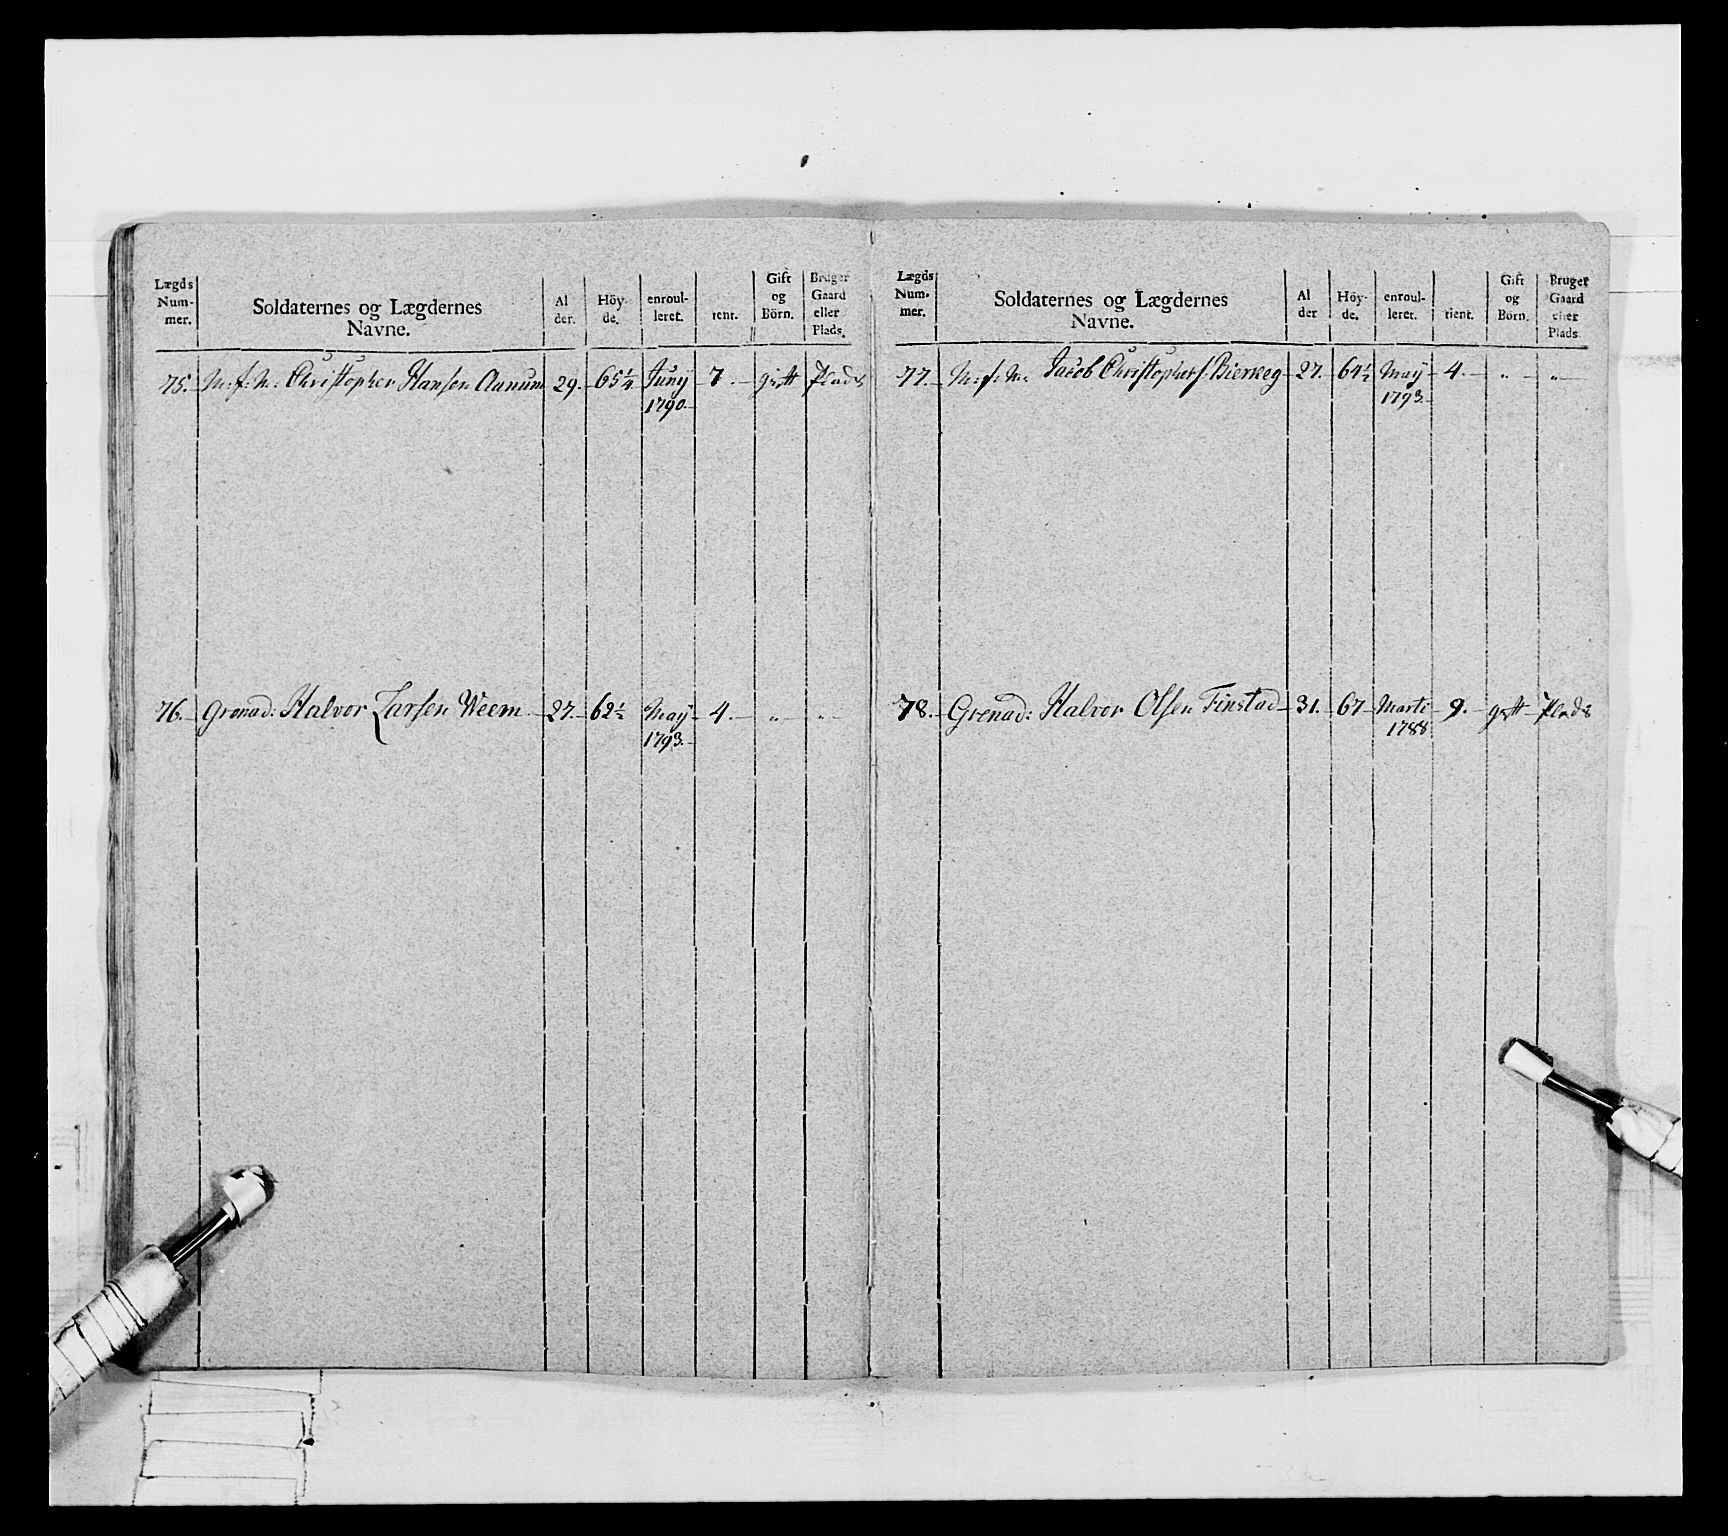 Lægds Num- mer. Soldaternes og Lægdernes Navne. Al der. Höy- de. enroul- leret. tient. Gift og Börn. Bruger Gaard eller Plads.
75. N: f: N: Christopher Hansen Aanum 29. 65¼ Juny 7. gift Plads
1790.
76. Grenad: Halvor Larsen Weem 27. 62½ May 4. „ „
1793.
Lægds Num- mer. Soldaternes og Lægdernes Navne. Al der Höy- de. enroul- leret. tient. Gift og Börn. Bruger Gaard eller Plads
77. N: f: N: Jacob Christophers: Bierkeg 27. 64½ May 4. „ „
1793.
78. Grenad: Halvor Olsen Finstad 31. 67 Marti 9. gift Plads
1788